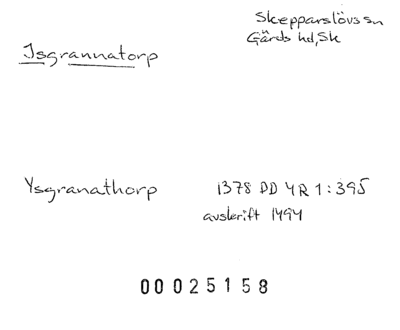 Skepparslövs sn
Gärds hd, Sk
Isgrannatorp
Ysgranathorp 1378 DD 4R 1:395
avskrift 1494
00025158